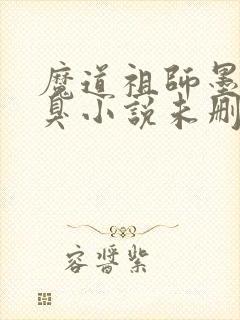 魔道祖師墨
臭小說未刪
容醬紫